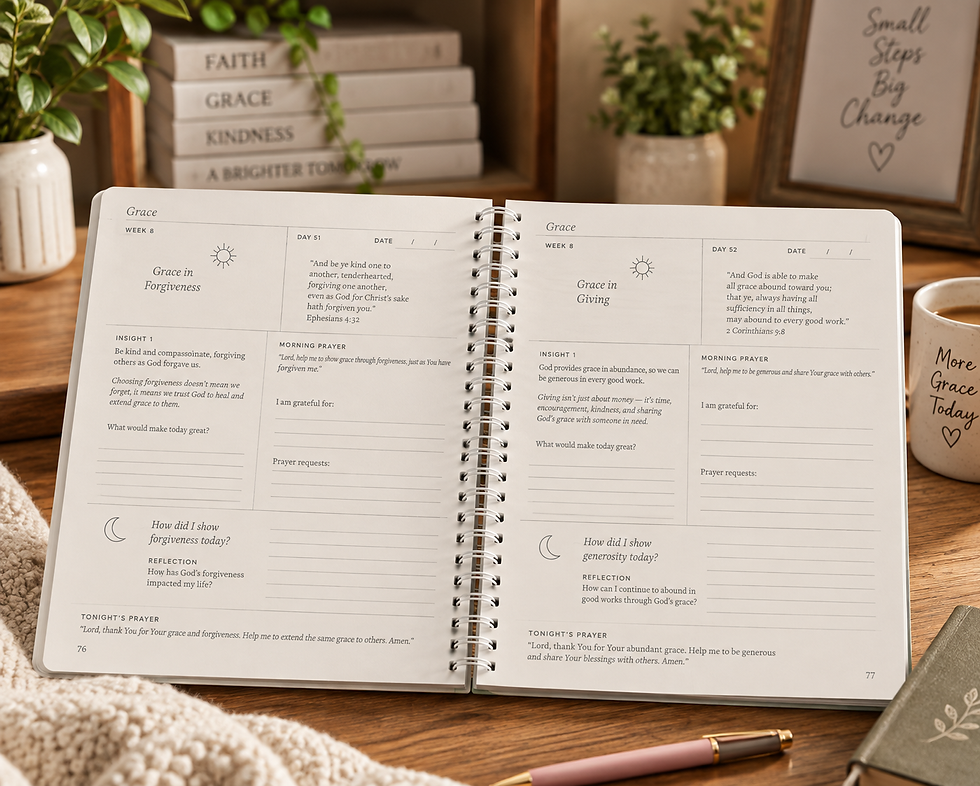 FAITH
GRACE
KINDNESS
A BRIGHTER TOMORROW
Small
Steps
Big
Change
Grace
WEEK 8
Grace in
Forgiveness
DAY 51
DATE / /
"And be ye kind one to
another, tenderhearted,
forgiving one another,
even as God for Christ's sake
hath forgiven you."
Ephesians 4:32
INSIGHT 1
Be kind and compassoinate, forgiving
others as God forgave us.
Choosing forgiveness doesn't mean we
forget, it means we trust God to heal and
extend grace to them.
What would make today great?
MORNING PRAYER
"Lord, help me to show grace through forgiveness. just as You have
forgiven me."
I am grateful for:
Prayer requests:
How did I show
forgiveness today?
REFLECTION
How has God's forgiveness
impacted my life?
TONIGHT'S PRAYER
"Lord, thank You for Your grace and forgiveness. Help me to extend the same grace to others. Amen."
76
Grace
WEEK 8
Grace in
Giving
DAY 52
DATE / /
"And God is able to make
all grace abound toward you;
that ye, always having all
sufficiency in all things,
may abound to every good work."
2 Corinthians 9:8
INSIGHT 1
God provides grace in abundance, so we can
be generous in every good work.
Giving isn't just about money — it's time,
encouragement, kindness, and sharing
God's grace with someone in need.
What would make today great?
MORNING PRAYER
"Lord, help me to be generous and share Your grace with others."
I am grateful for:
Prayer requests:
How did I show
generosity today?
REFLECTION
How can I continue to abound in
good works through God's grace?
TONIGHT'S PRAYER
"Lord, thank You for Your abundant grace. Help me to be generous
and share Your blessings with others. Amen."
77
More
Grace
Today